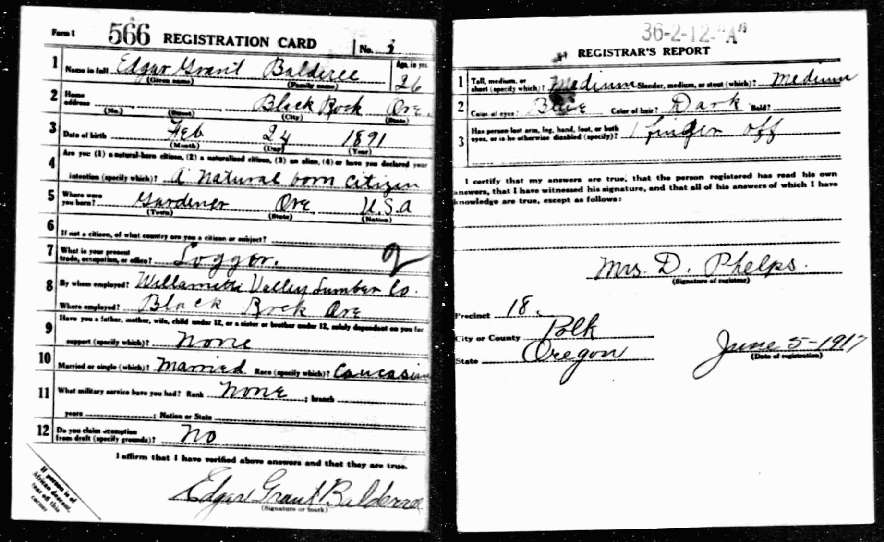 Form 1 566 REGISTRATION CARD No. 3
1 Name in full Edgar Grant Balderee Age, in yrs. 26
(Given name) (Family name)
2 Home address Black Rock Ore.
(No.) (Street) (City) (State)
3 Date of birth Feb 24 1891
(Month) (Day) (Year)
4 Are you: (1) a natural-born citizen, (2) a naturalized citizen, (3) an alien, (4) or have you declared your
intention (specify which)? A natural born citizen
5 Where were you born? Gardener Ore U.S.A
(Town) (State) (Nation)
6 If not a citizen, of what country are you a citizen or subject?
7 What is your present trade, occupation, or office? Logger. 2
8 By whom employed? Willamette Valley Lumber Co.
Where employed? Black Rock Ore
9 Have you a father, mother, wife, child under 12, or a sister or brother under 12, solely dependent on you for
support (specify which)? None
10 Married or single (which)? Married Race (specify which)? Caucasian
11 What military service have you had? Rank None ; branch
years ; Nation or State
12 Do you claim exemption from draft (specify grounds)? No
I affirm that I have verified above answers and that they are true.
Edgar Grant Balderee
(Signature or mark)
If person is of
African descent,
tear off this
corner
36-2-12-"A"
REGISTRAR'S REPORT
1 Tall, medium, or short (specify which)? Medium Slender, medium, or stout (which)? Medium
2 Color of eyes? Blue Color of hair? Dark Bald?
3 Has person lost arm, leg, hand, foot, or both
eyes, or is he otherwise disabled (specify)? 1 finger off
I certify that my answers are true, that the person registered has read his own
answers, that I have witnessed his signature, and that all of his answers of which I have
knowledge are true, except as follows:
Mrs. D. Phelps.
(Signature of registrar)
Precinct 18.
City or County Polk
State Oregon
June 5-1917
(Date of registration)